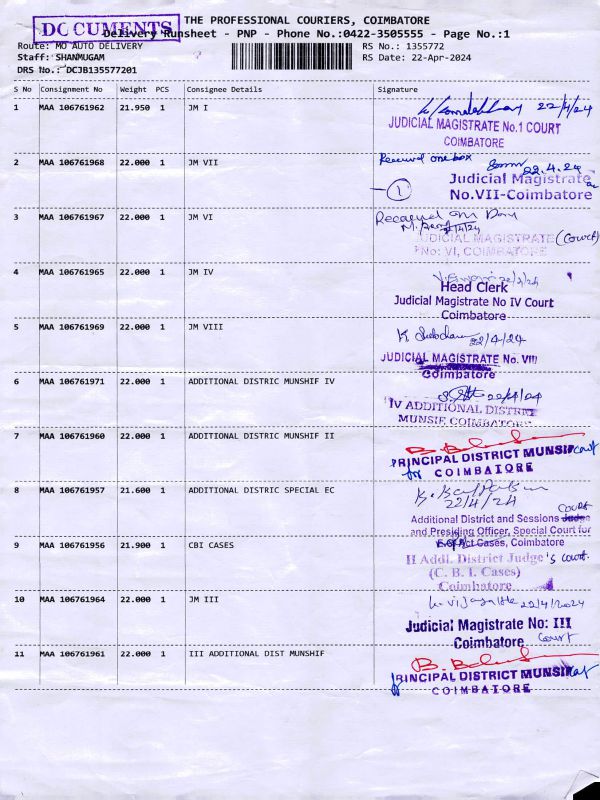 THE PROFESSIONAL COURIERS, COIMBATORE
DOCUMENTS
Delivery Runsheet - PNP - Phone No.:0422-3505555 - Page No.:1
Route: MO AUTO DELIVERY RS No.: 1355772
Staff: SHANMUGAM RS Date: 22-Apr-2024
DRS No.: DCJB135577201
S No Consignment No Weight PCS Consignee Details Signature
1 MAA 106761962 21.950 1 JM I
22/4/24
JUDICIAL MAGISTRATE No.1 COURT
COIMBATORE
2 MAA 106761968 22.000 1 JM VII
Received one box
22.4.24
1
Judicial Magistrate
No.VII-Coimbatore
3 MAA 106761967 22.000 1 JM VI
JUDICIAL MAGISTRATE (Court)
No: VI, COIMBATORE
4 MAA 106761965 22.000 1 JM IV
22/4/24
Head Clerk
Judicial Magistrate No IV Court
Coimbatore
5 MAA 106761969 22.000 1 JM VIII
22/4/24
JUDICIAL MAGISTRATE No. VIII
Coimbatore
6 MAA 106761971 22.000 1 ADDITIONAL DISTRIC MUNSHIF IV
22/4/24
IV ADDITIONAL DISTRICT
MUNSIF COIMBATORE
7 MAA 106761960 22.000 1 ADDITIONAL DISTRIC MUNSHIF II
PRINCIPAL DISTRICT MUNSIF court
for COIMBATORE
8 MAA 106761957 21.600 1 ADDITIONAL DISTRIC SPECIAL EC
22/4/24
COURT
Additional District and Sessions Judge
and Presiding Officer, Special Court for
Act Cases, Coimbatore
9 MAA 106761956 21.900 1 CBI CASES
II Addl. District Judge's court.
(C. B. I. Cases)
Coimbatore
10 MAA 106761964 22.000 1 JM III
22/4/2024
Judicial Magistrate No: III
Coimbatore Court
11 MAA 106761961 22.000 1 III ADDITIONAL DIST MUNSHIF
PRINCIPAL DISTRICT MUNSIF court
for COIMBATORE